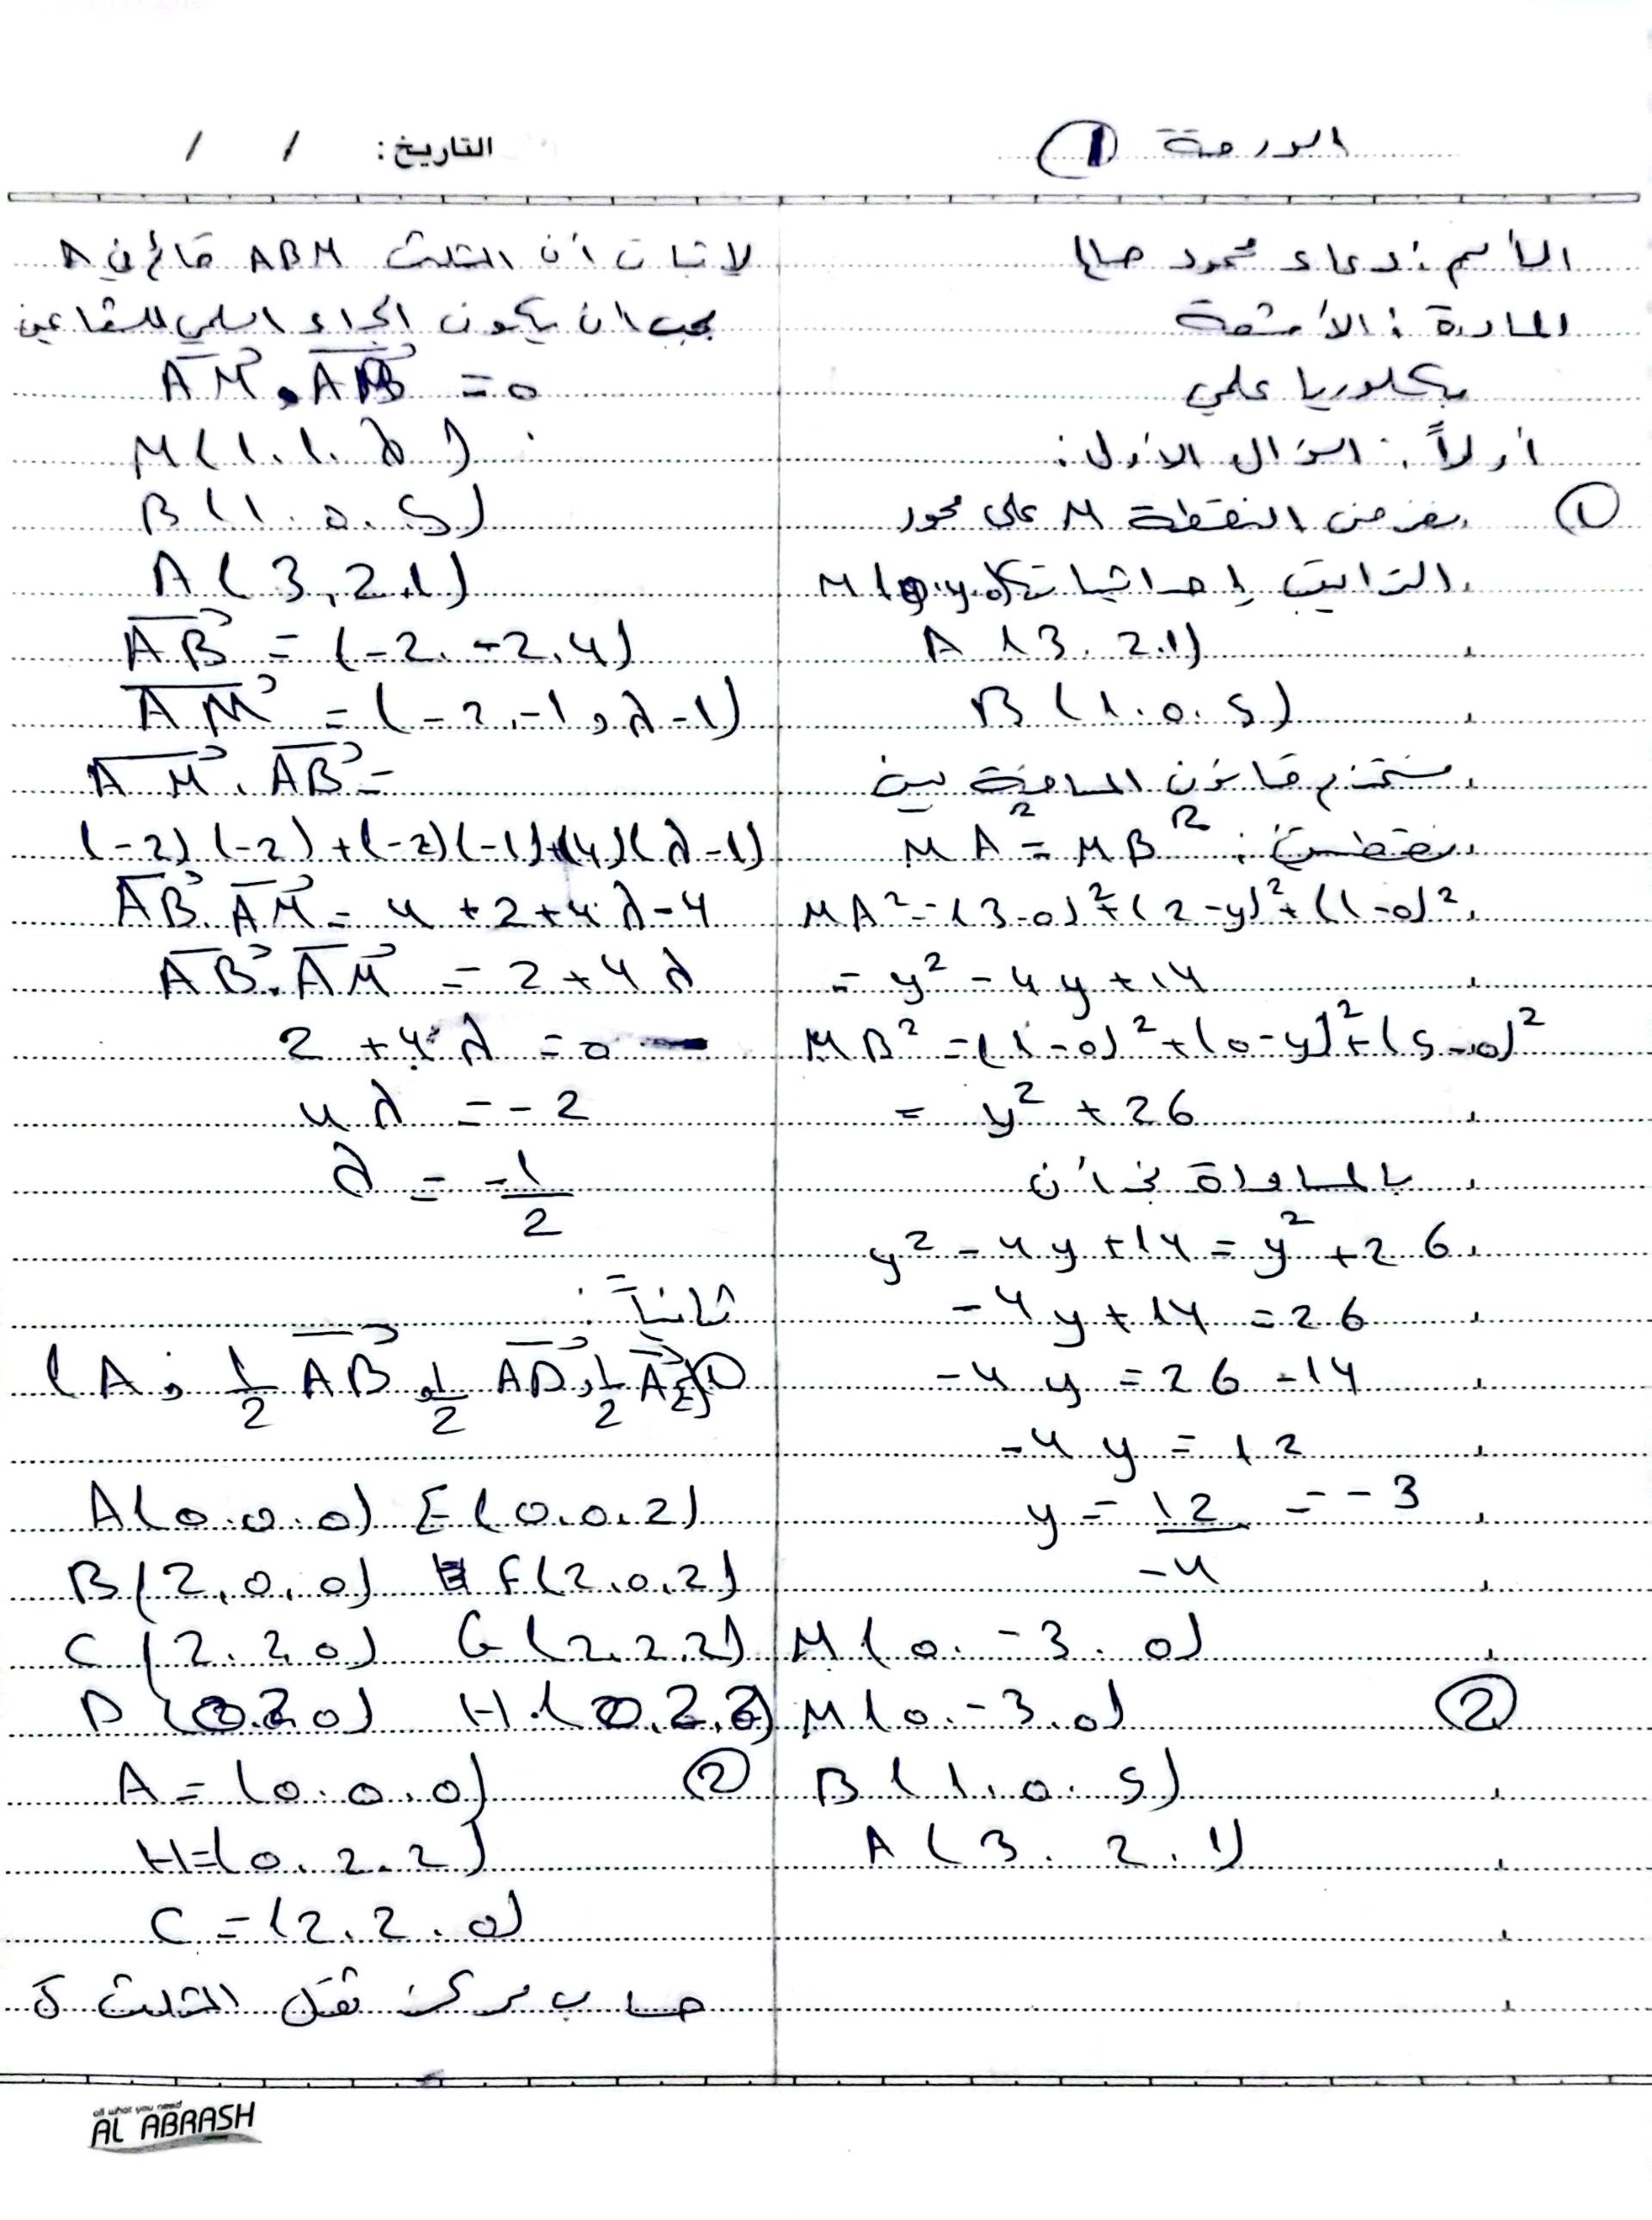 الورقة ①
التاريخ: / /
الأسم: دعاء محمود صالح
المادة: الأشعة
بكلوريا علمي
أولاً: السؤال الأول:
① بفرض النقطة M على محور
التراتيب إحداثياتها M(0.y.0)
A (3. 2.1)
B (1.0.5)
نستخدم قانون المسافة بين
نقطتين: MA² = MB²
MA² = (3-0)² + (2-y)² + (1-0)²
= y² - 4y + 14
MB² = (1-0)² + (0-y)² + (5-0)²
= y² + 26
بالمساواة نجد أن
y² - 4y + 14 = y² + 26
-4y + 14 = 26
-4y = 26 - 14
-4y = 12
y = 12/-4 = -3
M(0.-3.0)
② M(0.-3.0)
B (1.0.5)
A (3. 2.1)
لاثبات أن المثلث ABM قائم في A
يجب ان يكون الجداء السلمي للشعاعين
AM⃗ . AB⃗ = 0
M(1.1.λ)
B(1.0.5)
A(3,2.1)
AB⃗ = (-2.-2.4)
AM⃗ = (-2.-1,λ-1)
AM⃗ . AB⃗ =
(-2)(-2)+(-2)(-1)+(4)(λ-1)
AB⃗ . AM⃗ = 4 + 2 + 4λ - 4
AB⃗ . AM⃗ = 2 + 4λ
2 + 4λ = 0
4λ = -2
λ = -1/2
ثانياً:
① (A; 1/2 AB⃗, 1/2 AD⃗, 1/2 AE⃗)
A(0.0.0) E(0.0.2)
B(2.0.0) F(2.0.2)
C(2.2.0) G(2.2.2)
D(0.2.0) H.(0.2.2)
② A = (0.0.0)
H=(0.2.2)
C = (2.2.0)
حساب مركز ثقل المثلث
all what you need
AL ABRASH